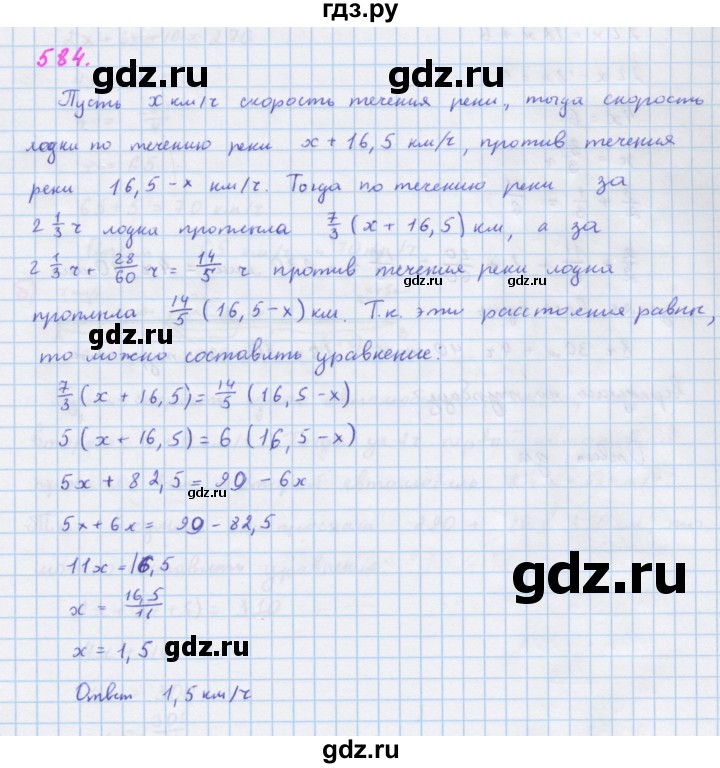 гдз.ру
584.
gdz.ru
Пусть x км/ч скорость течения реки, тогда скорость
лодки по течению реки x + 16,5 км/ч, против течения
gdz.ru
реки 16,5 - x км/ч. Тогда по течению реки за
2 1/3 ч лодка проплыла 7/3 (x + 16,5) км, а за
2 1/3 ч + 28/60 ч = 14/5 ч против течения реки лодка
gdz.ru
проплыла 14/5 (16,5 - x) км. Т.к. эти расстояния равны,
gdz.ru
то можно составить уравнение:
7/3 (x + 16,5) = 14/5 (16,5 - x)
5 (x + 16,5) = 6 (16,5 - x)
5x + 82,5 = 99 - 6x
gdz.ru
5x + 6x = 99 - 82,5
11x = 16,5
gdz.ru
x = 16,5/11
x = 1,5
gdz.ru
Ответ 1,5 км/ч
gdz.ru